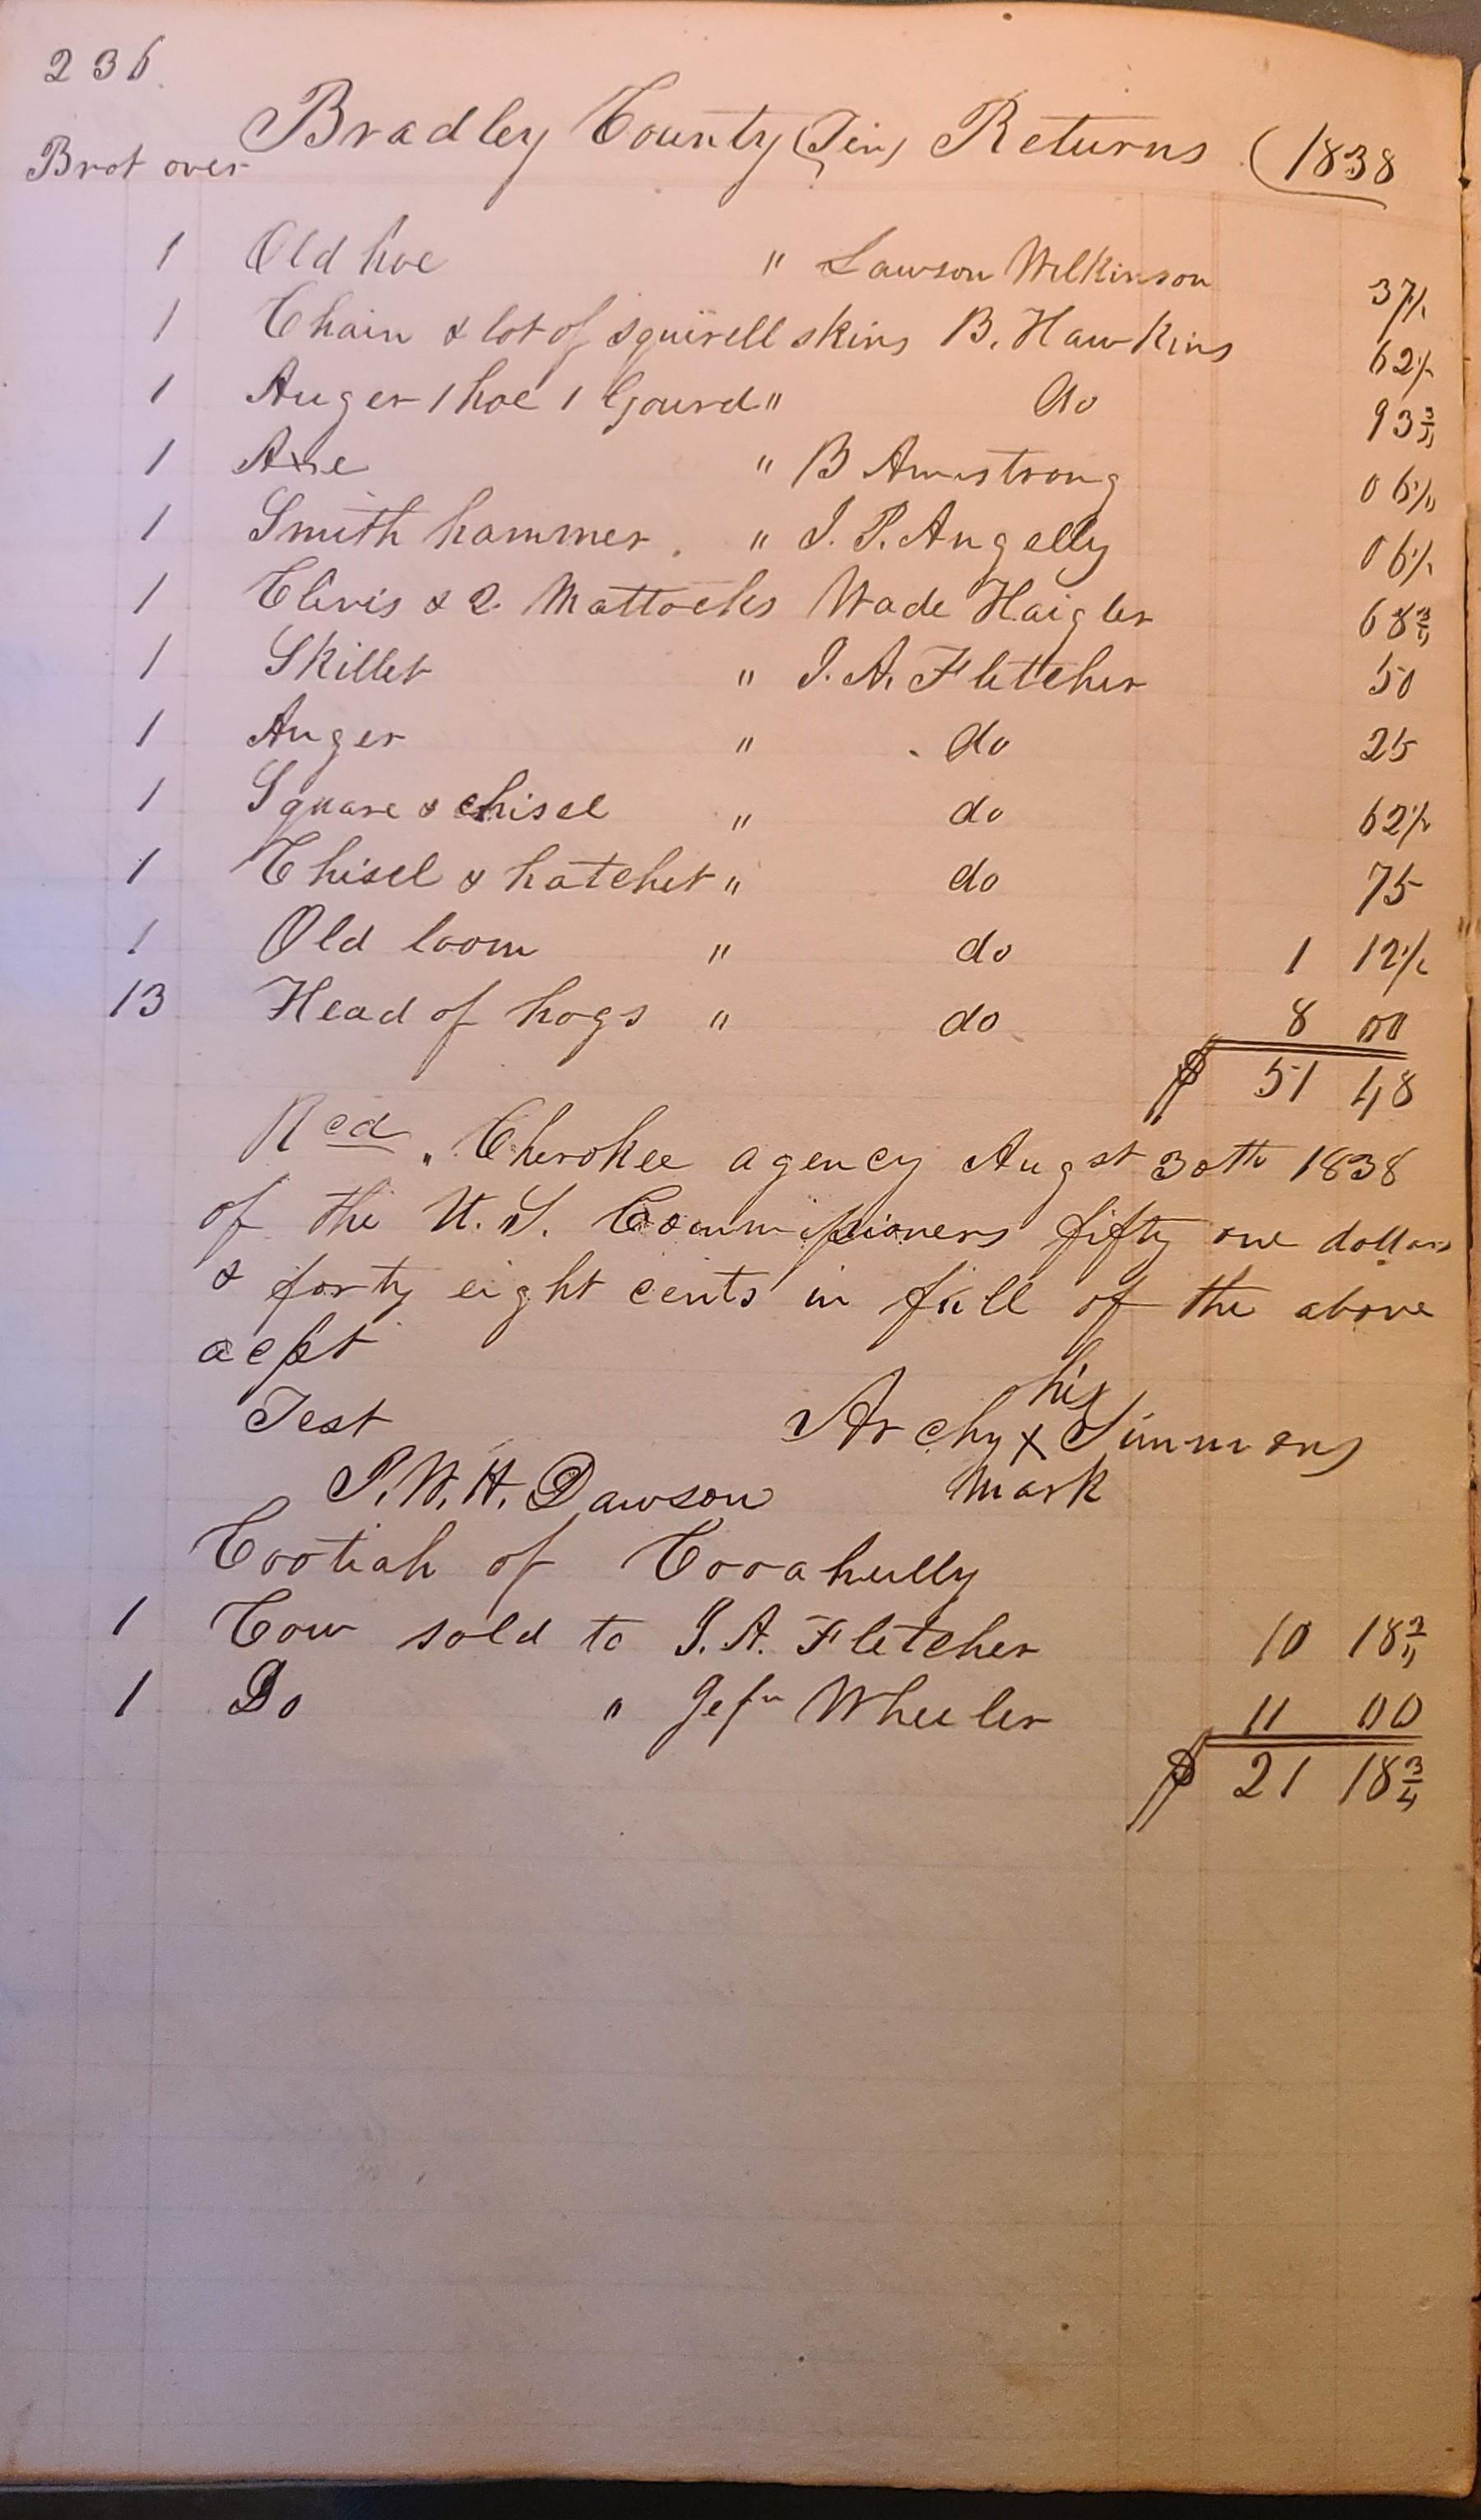 236
Bradley County (Ten) Returns (1838
Brot over
1 Old hoe " Lawson Wilkinson 37½
1 Chain & lot of squirell skins B. Hawkins 62½
1 Auger 1 hoe 1 Gourd " do 93¾
1 Axe " B Armstrong 06¼
1 Smith hammer " J. P. Angelly 06¼
1 Clivis & 2 Mattocks Wade Haigler 68¾
1 Skillet " J. A. Fletcher 50
1 Auger " do 25
1 Square & chisel " do 62½
1 Chisel & hatchet " do 75
1 Old loom " do 1 12½
13 Head of hogs " do 8 00
$ 51 48
Recd " Cherokee agency Augst 30th 1838
of the U. S. Commissioners fifty one dollars
& forty eight cents in full of the above
acpt
Test Archy his x mark Simmons
P. W. H. Dawson
Cootiah of Cooahully
1 Cow sold to J. A. Fletcher 10 18¾
1 Do " Jefn Wheeler 11 00
$ 21 18¾